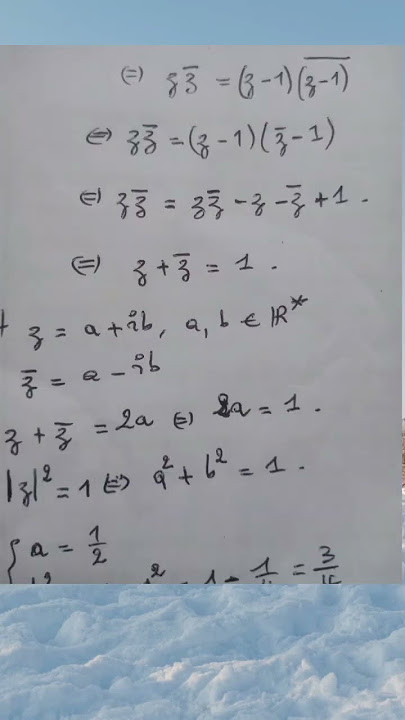 ⇔ z z̄ = (z - 1) (\overline{z - 1})
⇔ z z̄ = (z - 1) (z̄ - 1)
⇔ z z̄ = z z̄ - z - z̄ + 1 .
⇔ z + z̄ = 1 .
z = a + ib, a, b ∈ ℝ*
z̄ = a - ib
z + z̄ = 2a ⇔ 2a = 1 .
|z|² = 1 ⇔ a² + b² = 1 .
{ a = 1/2
= 3/